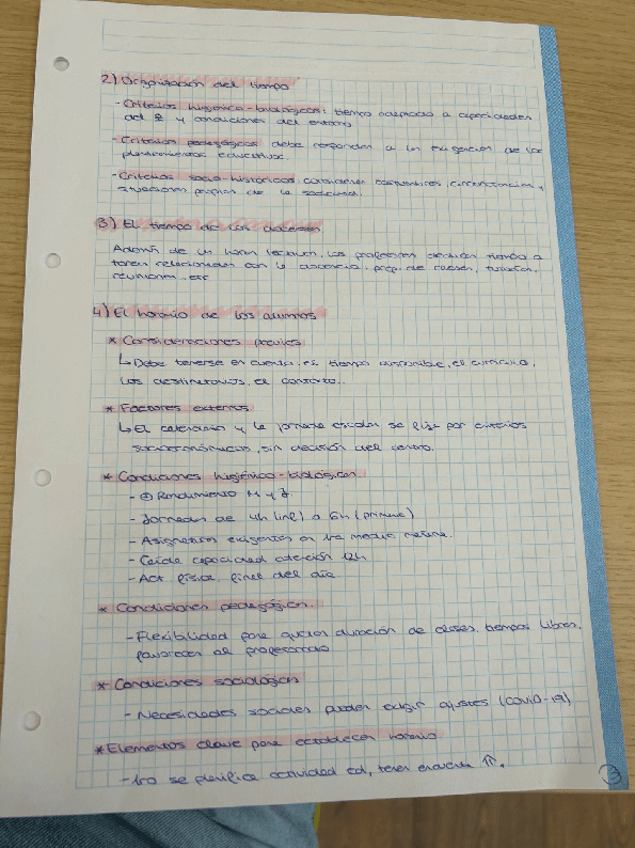 2) Organización del tiempo
- Criterios higiénico-biológicos: tiempo adaptado a capacidades
del y condiciones del entorno
- Criterios pedagógicos debe responder a las exigencias de los
planteamientos educativos.
- Criterios socio-históricos considerar costumbres, circunstancias y
situaciones propias de la sociedad.
3) El tiempo de los docentes
Además de un horario lectivo, los profesores dedican tiempo a
tareas relacionadas con la docencia, prep. de clases, tutorías,
reuniones, etc
4) El horario de los alumnos
* Consideraciones previas
↳ Debe tenerse en cuenta, el tiempo disponible, el currículo,
los destinatarios, el contexto..
* Factores externos
↳ El calendario y la jornada escolar se fija por criterios
socioeconómicos, sin decisión del centro.
* Condiciones higiénico-biológicas.
- ⊕ Rendimiento M y J.
- Jornadas de 4h (inf) a 6h (primaria)
- Asignaturas exigentes en la media mañana.
- Caída capacidad atención 12h
- Act física, final del día
* Condiciones pedagógicas.
- Flexibilidad para duración de clases, tiempos libres,
favorecer al profesorado
* Condiciones sociológicas
- Necesidades sociales pueden exigir ajustes (covid-19)
* Elementos clave para establecer horario
- No se planifica actividad tarea ↑↑.
3